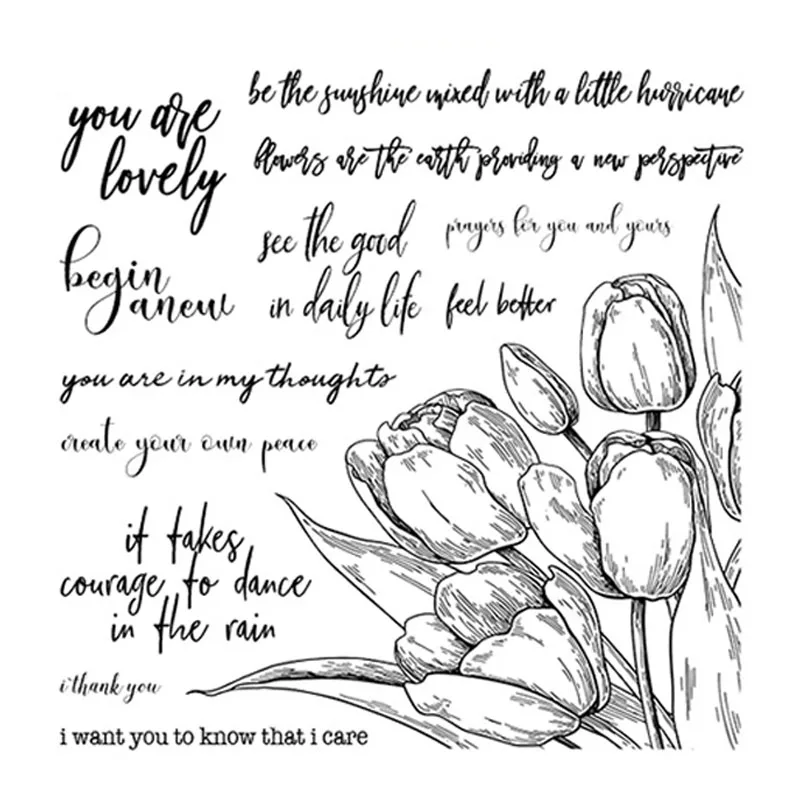 you are
lovely
be the sunshine mixed with a little hurricane
flowers are the earth providing a new perspective
see the good
in daily life
prayers for you and yours
begin
anew
feel better
you are in my thoughts
create your own peace
it takes
courage to dance
in the rain
i thank you
i want you to know that i care